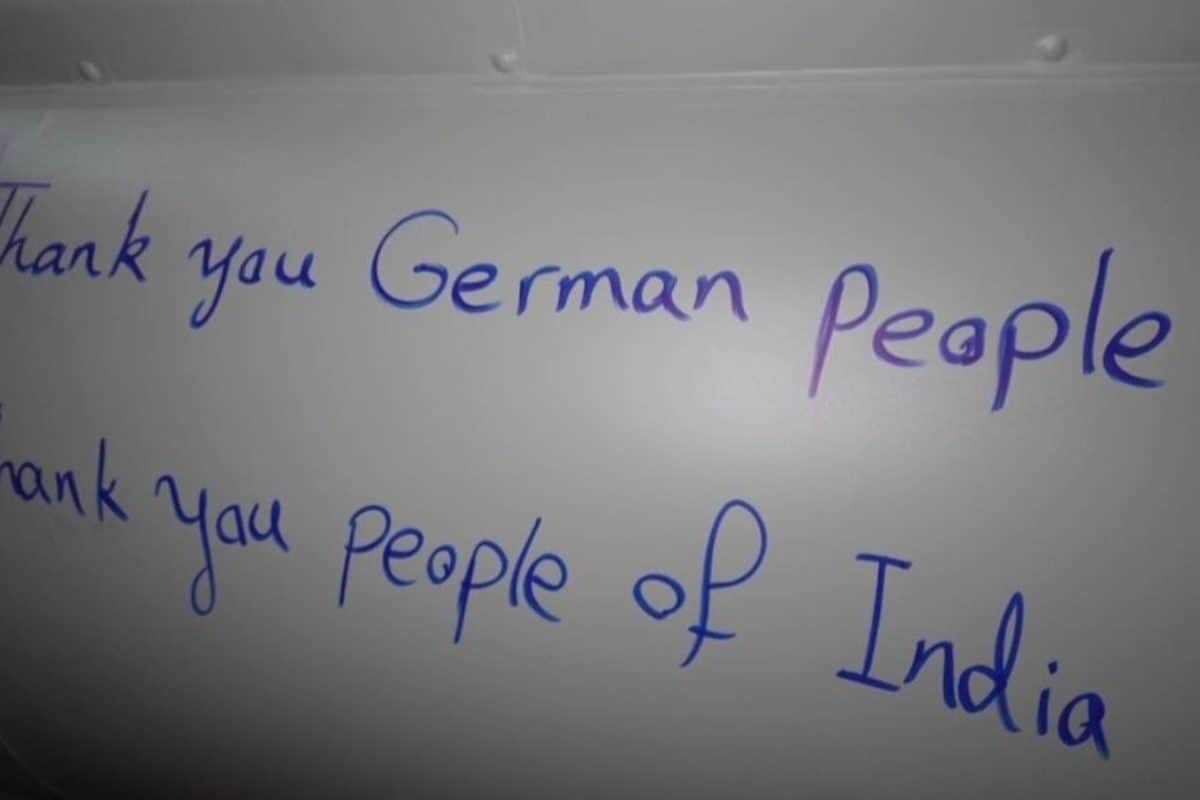 Thank you German People
hank you People of India